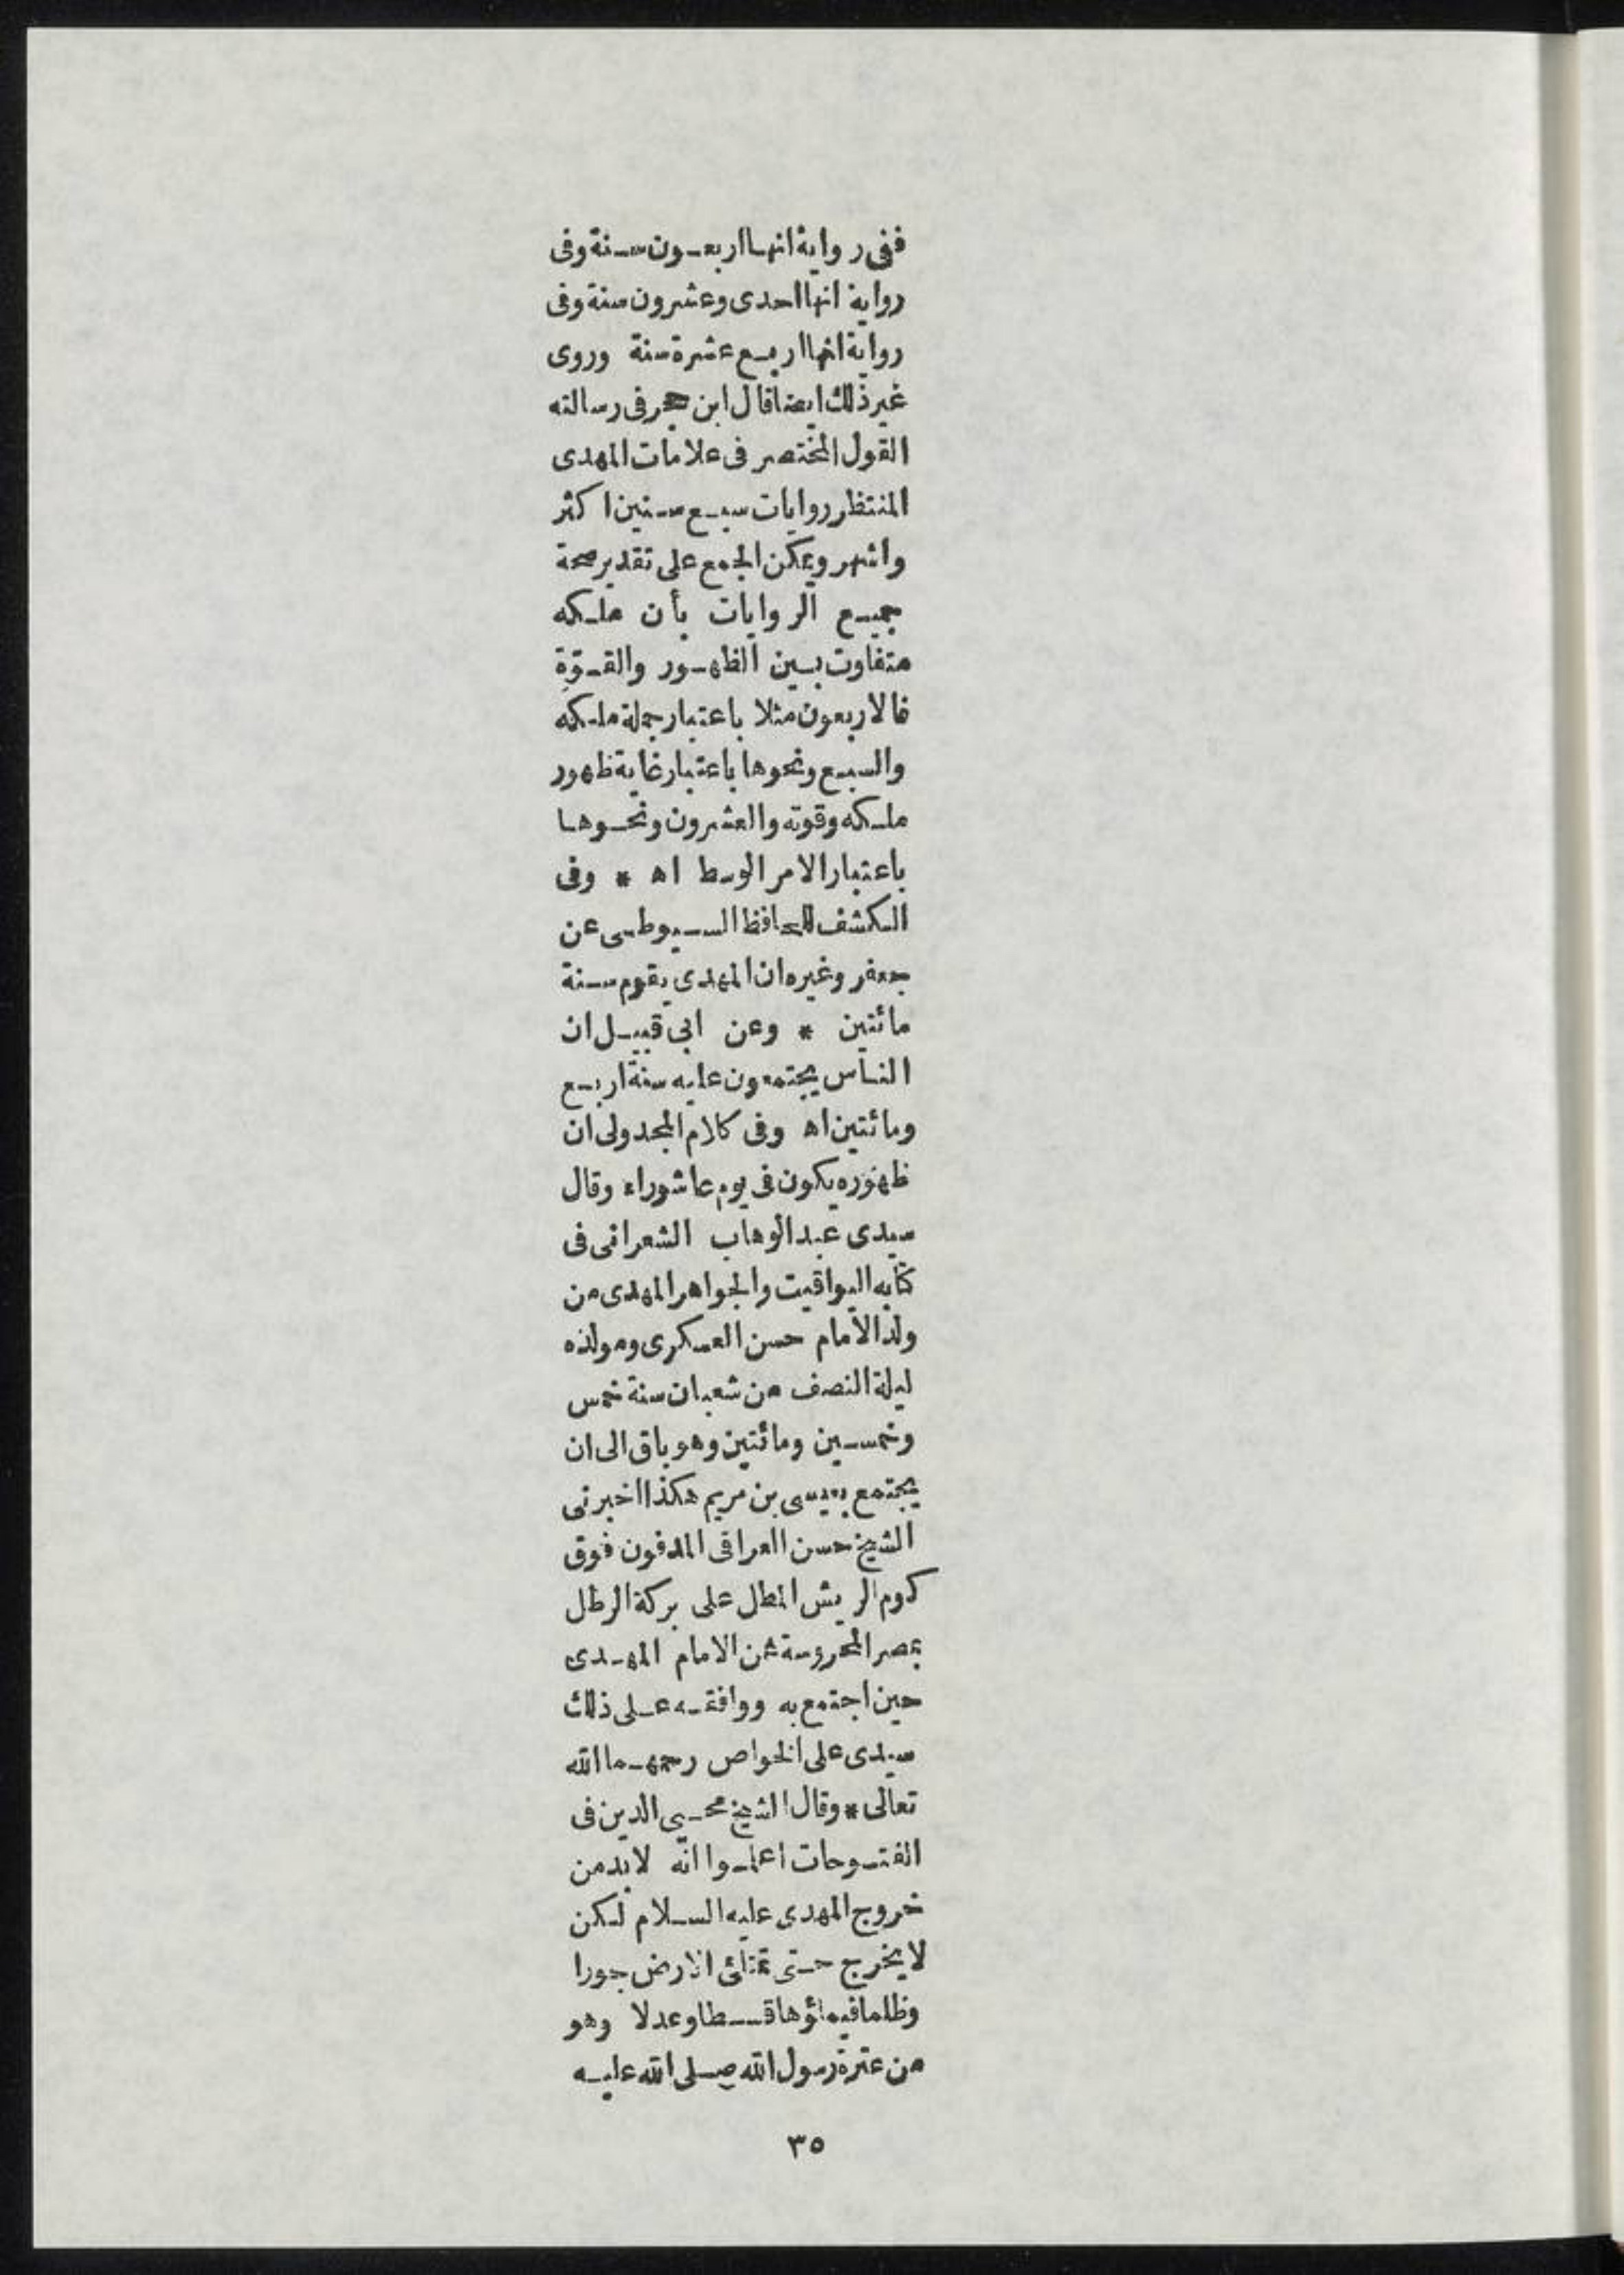 ففى رواية انها اربعون سنة وفى
رواية انها احدى وعشرون سنة وفى
رواية انها اربع عشرة سنة وروى
غير ذلك ايضا قال ابن حجر فى رسالته
القول المختصر فى علامات المهدى
المنتظر روايات سبع سنين اكثر
واشهر ويمكن الجمع على تقدير صحة
جميع الروايات بأن ملكه
متفاوت بين الظهور والقوّة
فالاربعون مثلا باعتبار جملة ملكه
والسبع ونحوها باعتبار غاية ظهور
ملكه وقوته والعشرون ونحوها
باعتبار الامر الوسط اه * وفى
الكشف للحافظ السيوطى عن
جعفر وغيره ان المهدى يقوم سنة
مائتين * وعن ابى قبيل ان
الناس يجتمعون عليه سنة اربع
ومائتين اه وفى كلام المجدولى ان
ظهوره يكون فى يوم عاشوراء وقال
سيدى عبد الوهاب الشعرانى فى
كتابه اليواقيت والجواهر المهدى من
ولد الامام حسن العسكرى ومولده
ليلة النصف من شعبان سنة خمس
وخمسين ومائتين وهو باق الى ان
يجتمع بعيسى بن مريم هكذا اخبرنى
الشيخ حسن العراقى المدفون فوق
كوم الريش المطل على بركة الرطل
بمصر المحروسة عن الامام المهدى
حين اجتمع به ووافقه على ذلك
سيدى على الخواص رحمهما الله
تعالى * وقال الشيخ محيى الدين فى
الفتوحات اعلموا انه لابد من
خروج المهدى عليه السلام لكن
لا يخرج حتى تمتلئ الارض جورا
وظلما فيملؤها قسطا وعدلا وهو
من عترة رسول الله صلى الله عليه
٣٥